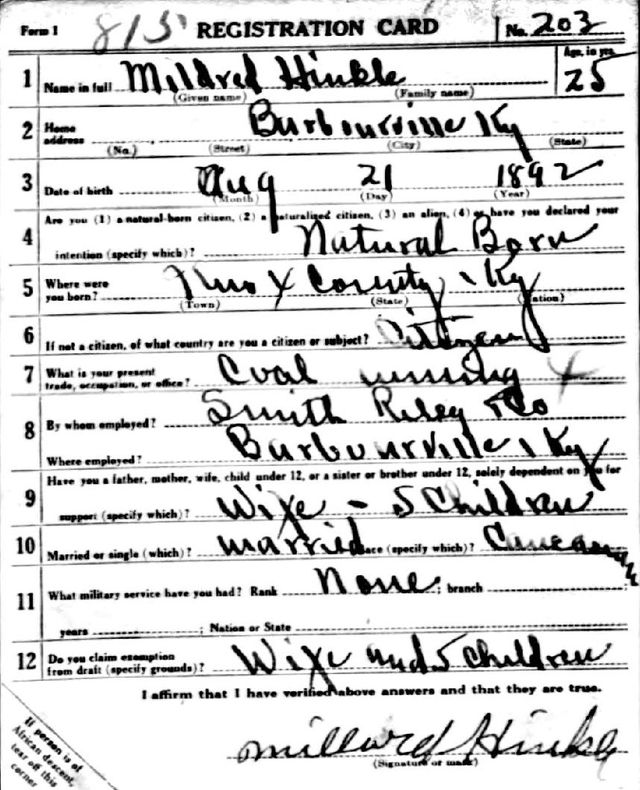 Form 1 815 REGISTRATION CARD No. 203
1 Name in full Mildred Hinkle Age, in yrs. 25
(Given name) (Family name)
2 Home address Burbourville Ky
(No.) (Street) (City) (State)
3 Date of birth Aug 21 1892
(Month) (Day) (Year)
Are you (1) a natural-born citizen, (2) a naturalized citizen, (3) an alien, (4) or have you declared your
4 intention (specify which)? Natural Born
5 Where were you born? Knox County, Ky
(Town) (State) (Nation)
6 If not a citizen, of what country are you a citizen or subject? Citizen
7 What is your present trade, occupation, or office? Coal mining X
8 By whom employed? Smith Riley & Co
Where employed? Burbourville, Ky
Have you a father, mother, wife, child under 12, or a sister or brother under 12, solely dependent on you for
9 support (specify which)? Wife - 5 Children
10 Married or single (which)? Married Race (specify which)? Caucasian
11 What military service have you had? Rank None ; branch
years ; Nation or State
12 Do you claim exemption from draft (specify grounds)? Wife and 5 children
I affirm that I have verified above answers and that they are true.
Millard Hinkle
(Signature or mark)
If person is of
African descent,
tear off this
corner